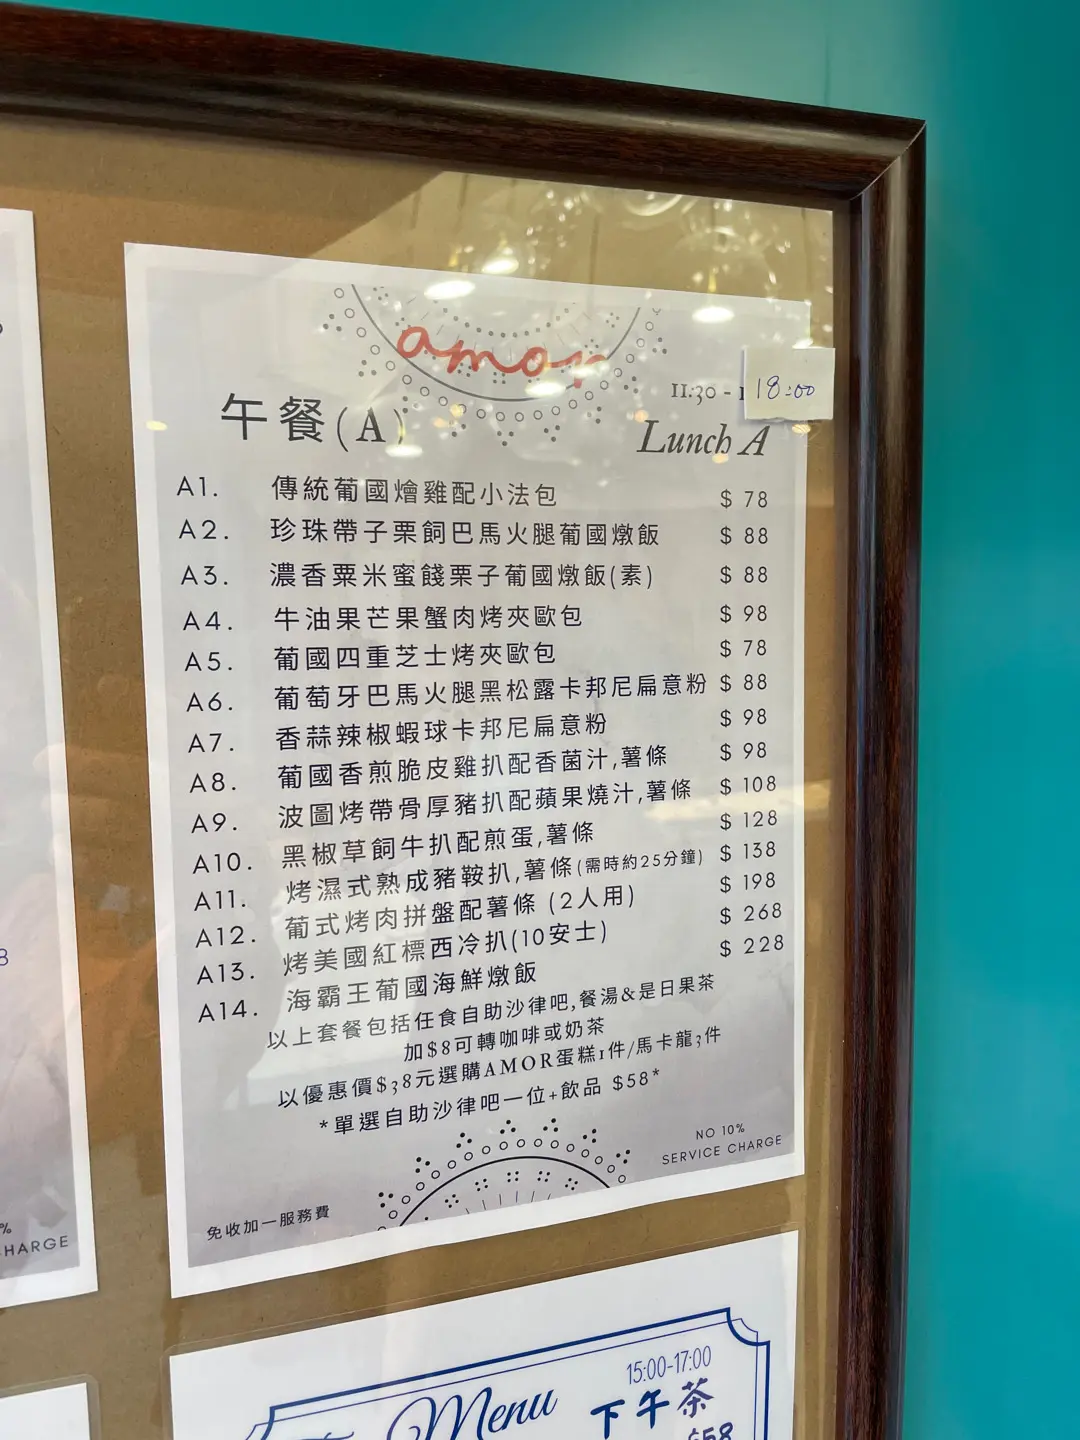 amor
11:30 - 18:00
午餐(A)
Lunch A
A1. 傳統葡國燴雞配小法包 $ 78
A2. 珍珠帶子栗飼巴馬火腿葡國燉飯 $ 88
A3. 濃香粟米蜜餞栗子葡國燉飯(素) $ 88
A4. 牛油果芒果蟹肉烤夾歐包 $ 98
A5. 葡國四重芝士烤夾歐包 $ 78
A6. 葡萄牙巴馬火腿黑松露卡邦尼扁意粉 $ 88
A7. 香蒜辣椒蝦球卡邦尼扁意粉 $ 98
A8. 葡國香煎脆皮雞扒配香菌汁,薯條 $ 98
A9. 波圖烤帶骨厚豬扒配蘋果燒汁,薯條 $ 108
A10. 黑椒草飼牛扒配煎蛋,薯條 $ 128
A11. 烤濕式熟成豬鞍扒,薯條(需時約25分鐘) $ 138
A12. 葡式烤肉拼盤配薯條 (2人用) $ 198
A13. 烤美國紅標西冷扒(10安士) $ 268
A14. 海霸王葡國海鮮燉飯 $ 228
以上套餐包括任食自助沙律吧,餐湯&是日果茶
加$8可轉咖啡或奶茶
以優惠價$38元選購AMOR蛋糕1件/馬卡龍3件
*單選自助沙律吧一位+飲品 $58*
NO 10%
SERVICE CHARGE
免收加一服務費
%
HARGE
8
15:00-17:00
Menu
下午茶
$58